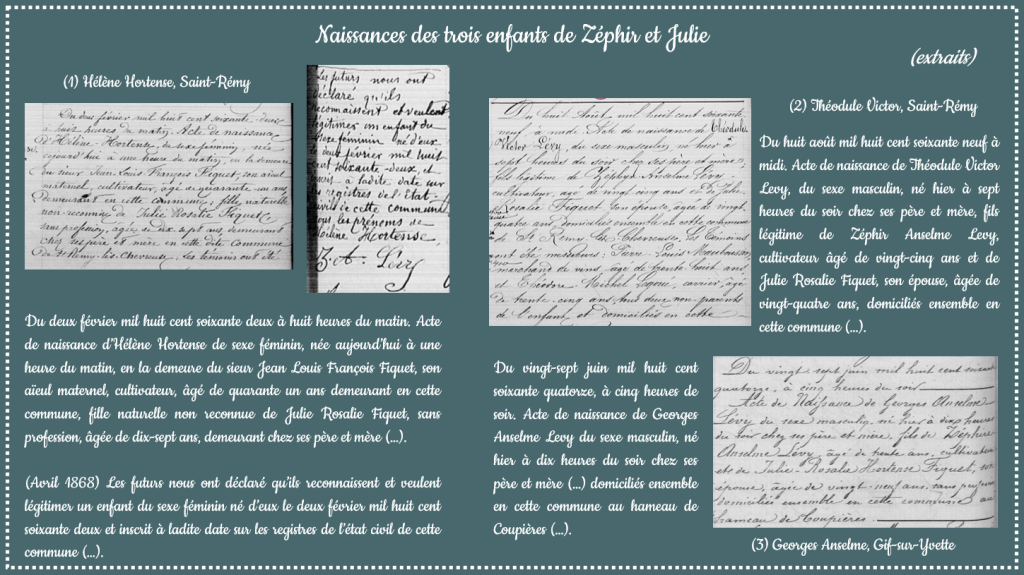 Naissances des trois enfants de Zéphir et Julie
(extraits)
(1) Hélène Hortense, Saint-Rémy
Du deux février mil huit cent soixante deux
à huit heures du matin. Acte de naissance
d'Hélène Hortense, du sexe féminin, née
aujourd'hui à une heure du matin, en la demeure
du sieur Jean Louis François Fiquet, son aïeul
maternel, cultivateur, âgé de quarante un ans
demeurant en cette commune, fille naturelle
non reconnue de Julie Rosalie Fiquet,
sans profession, âgée de dix sept ans, demeurant
chez ses père et mère en cette dite commune
de St Remy-lès-Chevreuse. Les témoins ont été
Les futurs nous ont
déclaré qu'ils
reconnaissent et veulent
légitimer un enfant du
sexe féminin né d'eux
le deux février mil huit
cent soixante deux et
inscrit à ladite date sur
les registres de l'état
civil de cette commune
sous les prénoms de
Hélène Hortense.
Levy
Du huit Août mil huit cent soixante
neuf à midi. Acte de naissance de Théodule
Victor Levy, du sexe masculin, né hier à
sept heures du soir chez ses père et mère,
fils légitime de Zéphir Anselme Levy,
cultivateur, âgé de vingt cinq ans et de Julie
Rosalie Fiquet son épouse, âgée de vingt
quatre ans, domiciliés ensemble en cette commune
de St Remy-lès-Chevreuse. Les témoins
ont été messieurs Pierre Louis
marchand de vins, âgé de trente huit ans
et Théodore Michel carrier, âgé
de trente-cinq ans, tous deux non-parents
de l'enfant et domiciliés en cette
(2) Théodule Victor, Saint-Rémy
Du huit août mil huit cent soixante neuf à
midi. Acte de naissance de Théodule Victor
Levy, du sexe masculin, né hier à sept
heures du soir chez ses père et mère, fils
légitime de Zéphir Anselme Levy,
cultivateur âgé de vingt-cinq ans et de
Julie Rosalie Fiquet, son épouse, âgée de
vingt-quatre ans, domiciliés ensemble en
cette commune (...).
Du deux février mil huit cent soixante deux à huit heures du matin. Acte
de naissance d'Hélène Hortense de sexe féminin, née aujourd'hui à une
heure du matin, en la demeure du sieur Jean Louis François Fiquet, son
aïeul maternel, cultivateur, âgé de quarante un ans demeurant en cette
commune, fille naturelle non reconnue de Julie Rosalie Fiquet, sans
profession, âgée de dix-sept ans, demeurant chez ses père et mère (...).
(Avril 1868) Les futurs nous ont déclaré qu'ils reconnaissent et veulent
légitimer un enfant du sexe féminin né d'eux le deux février mil huit cent
soixante deux et inscrit à ladite date sur les registres de l'état civil de cette
commune (...).
Du vingt-sept juin mil huit cent
soixante quatorze, à cinq heures de
soir. Acte de naissance de Georges
Anselme Levy du sexe masculin, né
hier à dix heures du soir chez ses
père et mère (...) domiciliés ensemble
en cette commune au hameau de
Coupières (...).
Du vingt sept juin mil huit cent soixante
quatorze, à cinq heures du soir
Acte de Naissance de Georges Anselme
Lévy du sexe masculin, né hier à dix heures
du soir chez ses père et mère, fils de Zéphire
Anselme Lévy, âgé de trente ans, cultivateur
et de Julie-Rosalie Hortense Fiquet, son
épouse, âgée de vingt-neuf ans, sans profession
domiciliés ensemble en cette commune au
hameau de Coupières.
(3) Georges Anselme, Gif-sur-Yvette